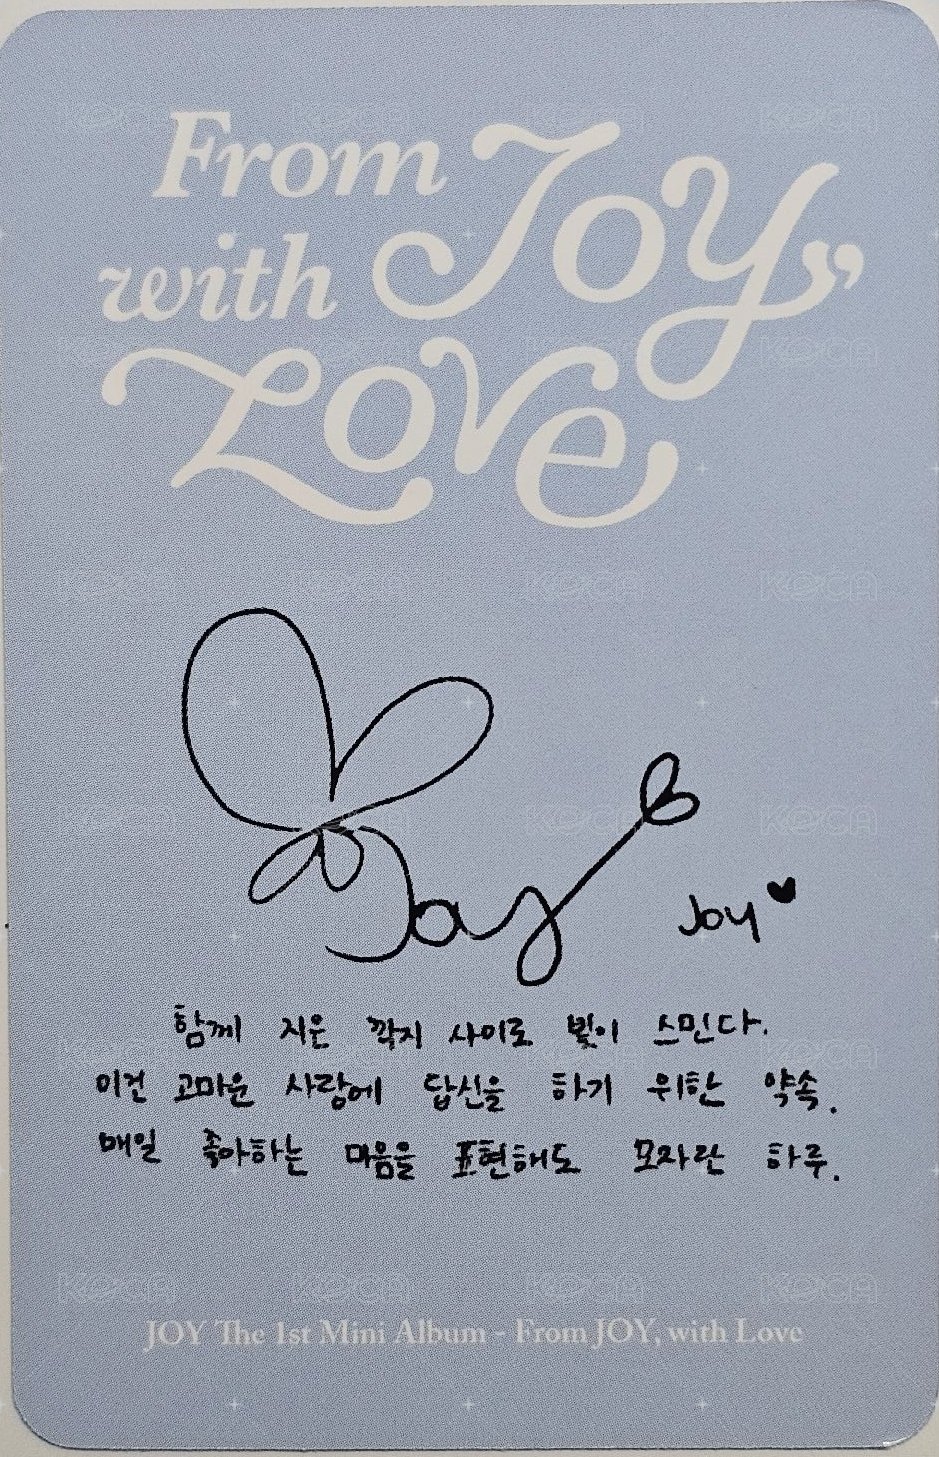 From Joy,
with Love
Joy
Joy♥
함께 지은 깍지 사이로 빛이 스민다.
이건 고마운 사랑에 답신을 하기 위한 약속.
매일 좋아하는 마음을 표현해도 모자란 하루.
JOY The 1st Mini Album - From JOY, with Love
KOCA